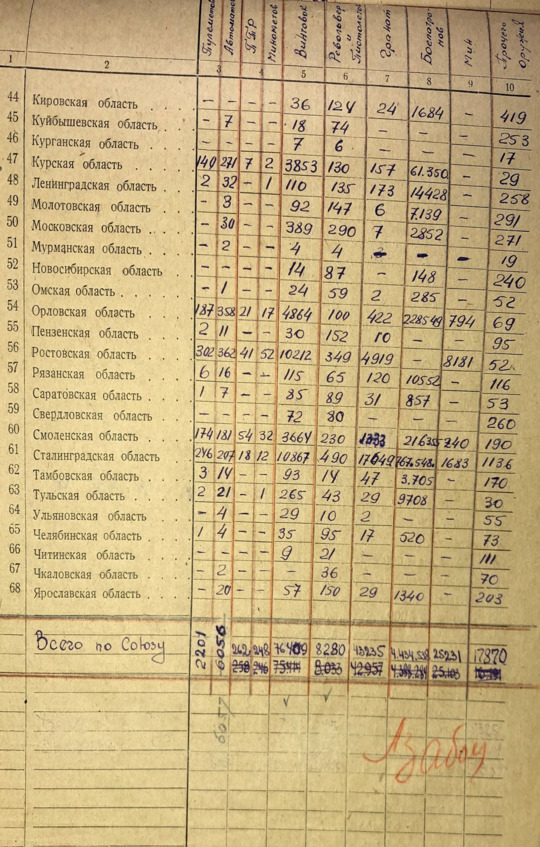 Пулеметов Автоматов ПТР Минометов Винтовок Револьвер и Пистолетов Гранат Боепатронов Мин Прочего Оружия
1 2 3 4 5 6 7 8 9 10
44 Кировская область - - - - 36 124 24 1684 - 419
45 Куйбышевская область - 7 - - 18 74 - - - 253
46 Курганская область - - - - 7 6 - - - 17
47 Курская область 140 271 7 2 3853 130 157 61.350 - 29
48 Ленинградская область 2 32 - 1 110 135 173 14428 - 258
49 Молотовская область - 3 - - 92 147 6 7.139 - 291
50 Московская область - 30 - - 389 290 7 2852 - 271
51 Мурманская область - 2 - - 4 4 - - - 19
52 Новосибирская область - - - - 14 87 - 148 - 240
53 Омская область - 1 - - 24 59 2 285 - 52
54 Орловская область 187 358 21 17 4864 100 422 228549 794 69
55 Пензенская область 2 11 - - 30 152 10 - - 95
56 Ростовская область 302 362 41 52 10212 349 4919 - 8181 52
57 Рязанская область 6 16 - - 115 65 120 10552 - 116
58 Саратовская область 1 7 - - 85 89 31 857 - 53
59 Свердловская область - - - - 72 80 - - - 260
60 Смоленская область 174 181 54 32 3664 230 216355 240 190
61 Сталинградская область 246 207 18 12 10867 490 17649 767.548 1683 1136
62 Тамбовская область 3 14 - - 93 14 47 3.705 - 170
63 Тульская область 2 21 - 1 265 43 29 9708 - 30
64 Ульяновская область - 4 - - 29 10 2 - - 55
65 Челябинская область 1 4 - - 35 95 17 520 - 73
66 Читинская область - - - - 9 21 - - - 111
67 Чкаловская область - 2 - - - 36 - - - 70
68 Ярославская область - 20 - - 57 150 29 1340 - 203
Всего по Союзу 2201 6056 262 248 76409 8280 43235 4.434.538 25231 17870
258 246 75.414 8.033 42.957 25.103
6037